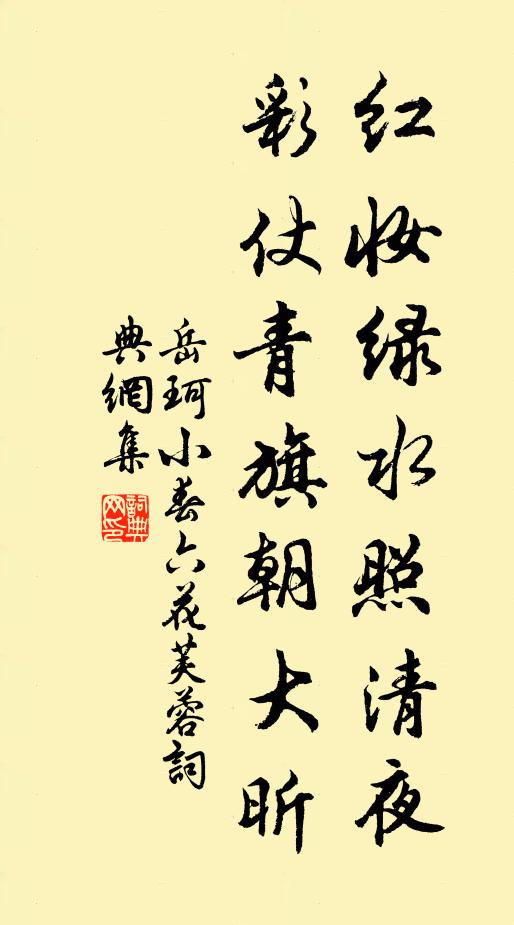 红妆绿水照清夜
彩仗青旗朝大昕
岳珂小春六花芙蓉詞
典網集
詞典
网印